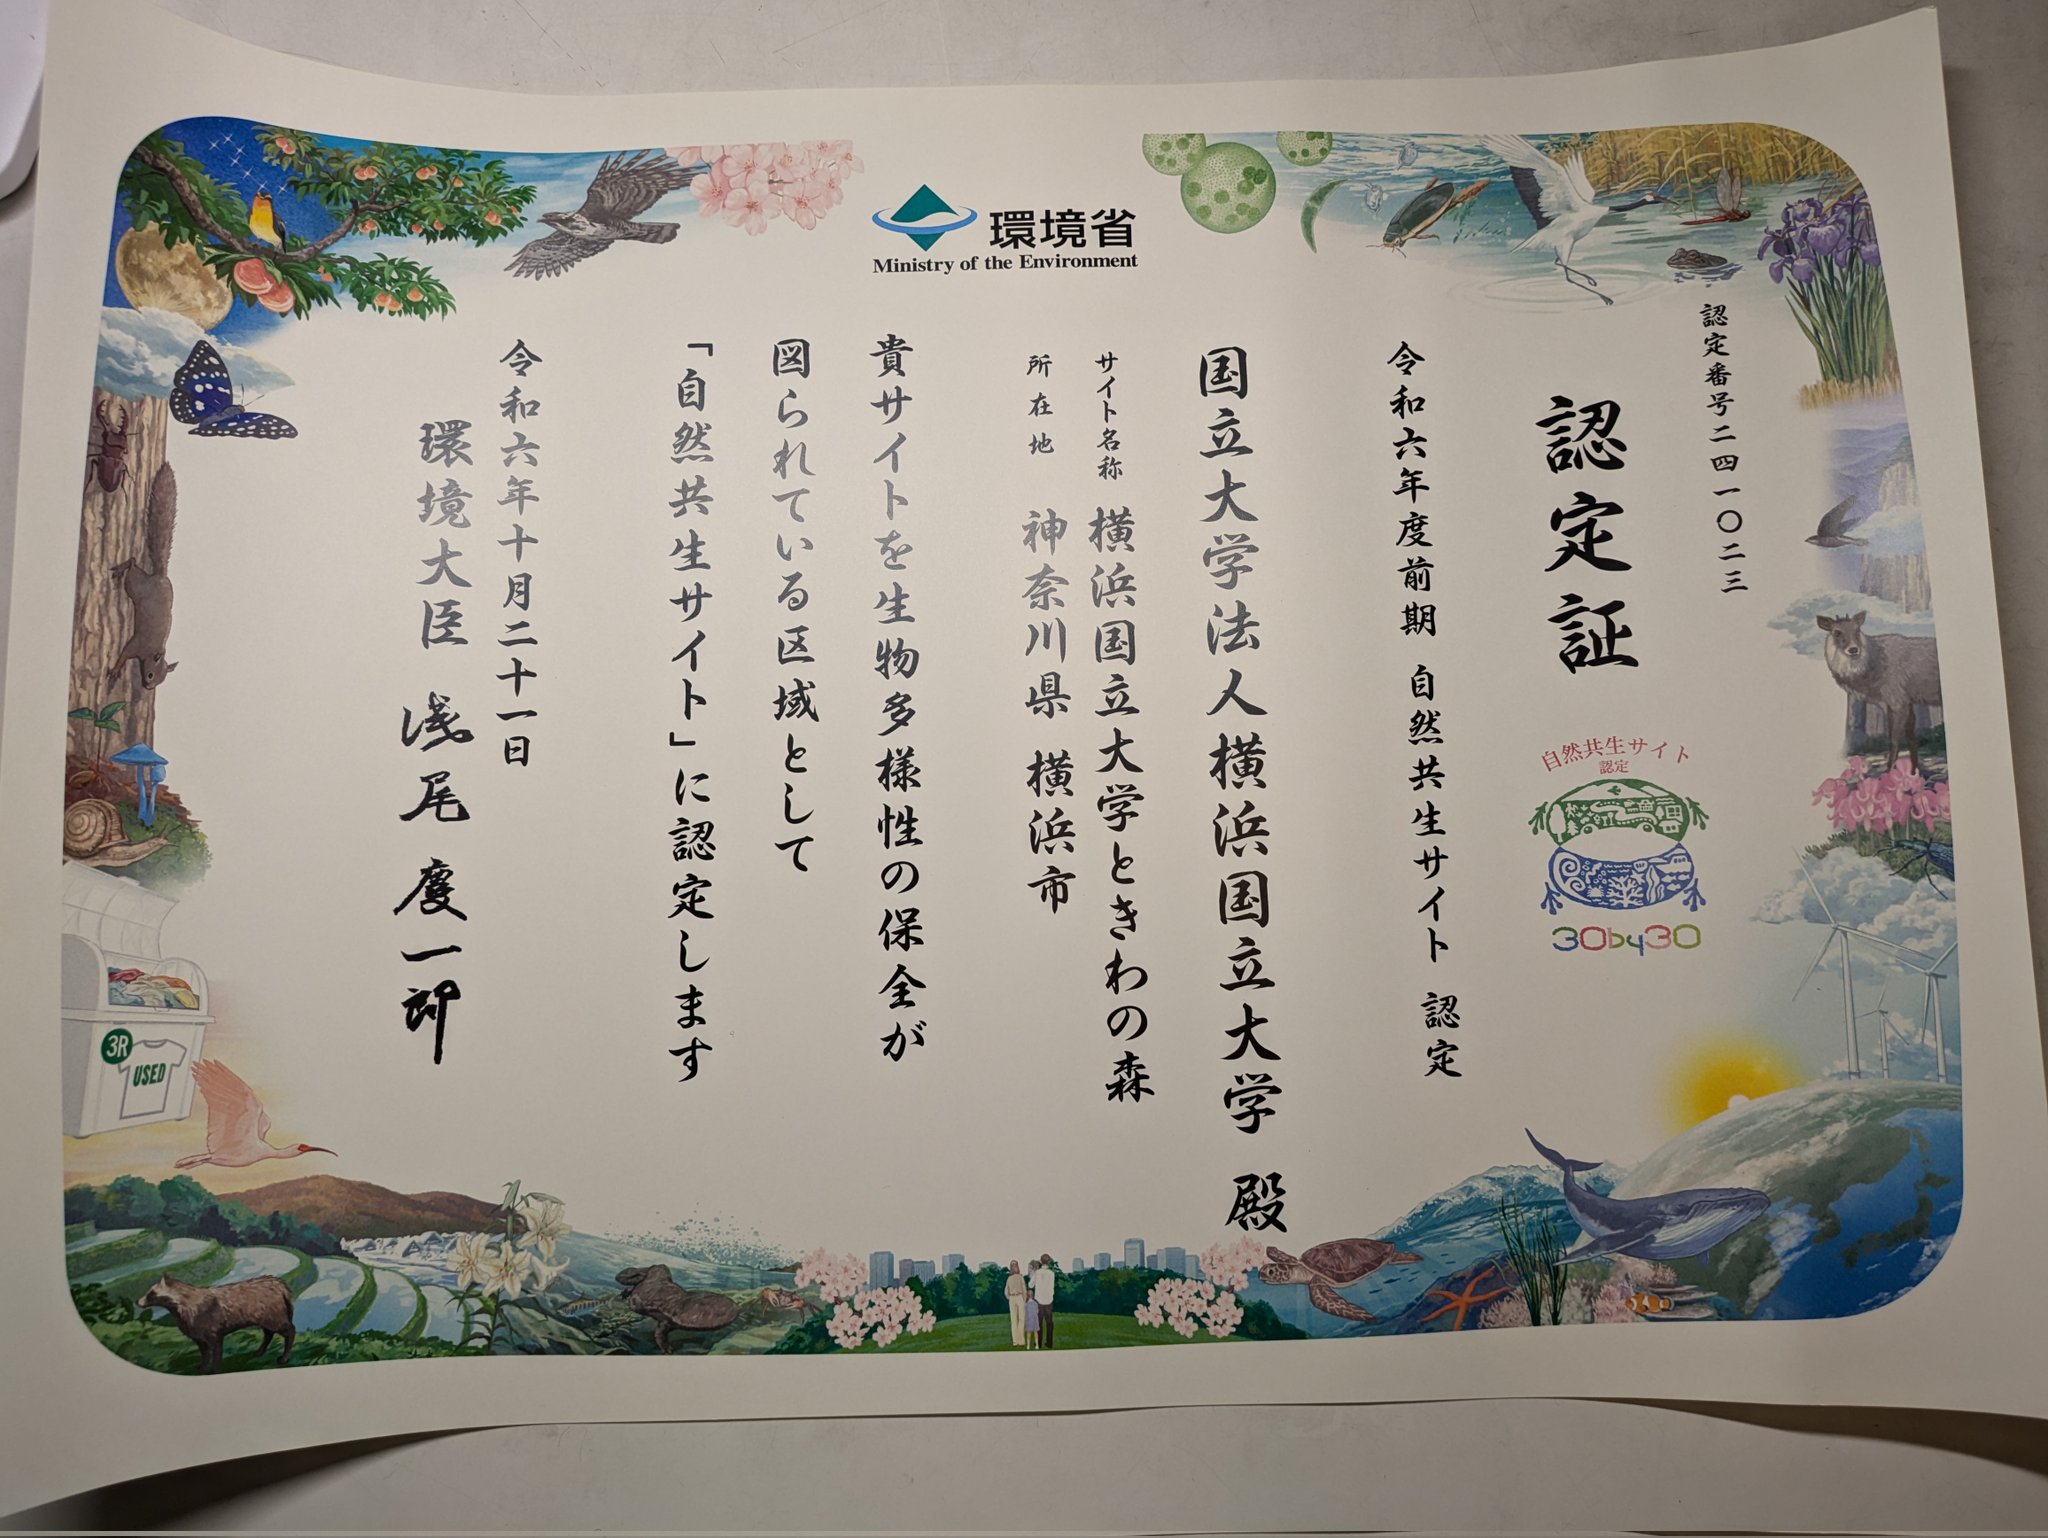 環境省
Ministry of the Environment
認定番号二四一〇二三
認定証
自然共生サイト
認定
30by30
令和六年度前期 自然共生サイト 認定
国立大学法人横浜国立大学 殿
サイト名称 横浜国立大学ときわの森
所在地 神奈川県 横浜市
貴サイトを生物多様性の保全が
図られている区域として
「自然共生サイト」に認定します
令和六年十月二十一日
環境大臣 浅尾慶一郎
3R
USED